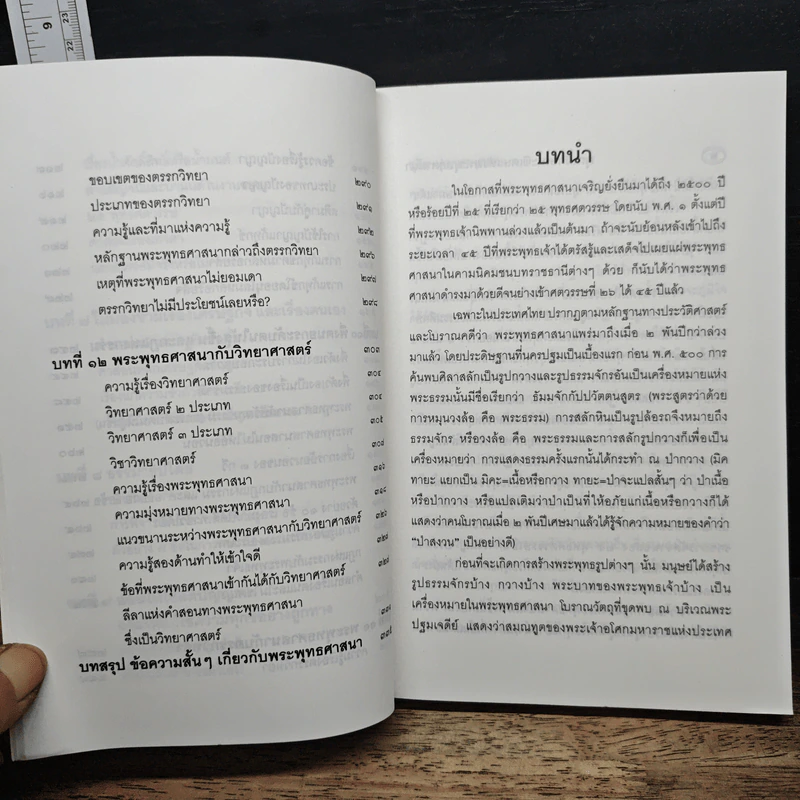 9
23
22
ขอบเขตของตรรกวิทยา ๒๙๐
ประเภทของตรรกวิทยา ๒๙๑
ความรู้และที่มาแห่งความรู้ ๒๙๒
หลักฐานพระพุทธศาสนากล่าวถึงตรรกวิทยา ๒๙๖
เหตุที่พระพุทธศาสนาไม่ยอมเดา
ตรรกวิทยาไม่มีประโยชน์เลยหรือ? ๒๙๘
บทที่ ๑๒ พระพุทธศาสนากับวิทยาศาสตร์ ๓๐๓
ความรู้เรื่องวิทยาศาสตร์ ๓๐๔
วิทยาศาสตร์ ๒ ประเภท ๓๐๔
วิทยาศาสตร์ ๓ ประเภท
วิชาวิทยาศาสตร์ ๓๐๘
ความรู้เรื่องพระพุทธศาสนา ๓๑๖
ความมุ่งหมายทางพระพุทธศาสนา ๓๑๘
แนวขนานระหว่างพระพุทธศาสนากับวิทยาศาสตร์
ความรู้สองด้านทำให้เข้าใจดี
ข้อที่พระพุทธศาสนาเข้ากันได้กับวิทยาศาสตร์
ลีลาแห่งคำสอนทางพระพุทธศาสนา
ซึ่งเป็นวิทยาศาสตร์
บทสรุป ข้อความสั้นๆ เกี่ยวกับพระพุทธศาสนา
บทนำ
ในโอกาสที่พระพุทธศาสนาเจริญยั่งยืนมาได้ถึง ๒๕๐๐ ปี
หรือร้อยปีที่ ๒๕ ที่เรียกว่า ๒๕ พุทธศตวรรษ โดยนับ พ.ศ. ๑ ตั้งแต่ปี
ที่พระพุทธเจ้านิพพานล่วงแล้วเป็นต้นมา ถ้าจะนับย้อนหลังเข้าไปถึง
ระยะเวลา ๔๕ ปีที่พระพุทธเจ้าได้ตรัสรู้และเสด็จไปเผยแผ่พระพุทธ
ศาสนาในคามนิคมชนบทราชธานีต่างๆ ด้วย ก็นับได้ว่าพระพุทธ
ศาสนาดำรงมาด้วยดีจนย่างเข้าศตวรรษที่ ๒๖ ได้ ๔๕ ปีแล้ว
เฉพาะในประเทศไทย ปรากฏตามหลักฐานทางประวัติศาสตร์
และโบราณคดีว่า พระพุทธศาสนาแพร่มาถึงเมื่อ ๒ พันปีกว่าล่วง
มาแล้ว โดยประดิษฐานที่นครปฐมเป็นเบื้องแรก ก่อน พ.ศ. ๕๐๐ การ
ค้นพบศิลาสลักเป็นรูปกวางและรูปธรรมจักรอันเป็นเครื่องหมายแห่ง
พระธรรมนั้นมีชื่อเรียกว่า ธัมมจักกัปปวัตตนสูตร (พระสูตรว่าด้วย
การหมุนวงล้อ คือ พระธรรม) การสลักหินเป็นรูปล้อรถจึงหมายถึง
ธรรมจักร หรือวงล้อ คือ พระธรรมและการสลักรูปกวางก็เพื่อเป็น
เครื่องหมายว่า การแสดงธรรมครั้งแรกนั้นได้กระทำ ณ ป่ากวาง (มิค
ทายะ แยกเป็น มิคะ=เนื้อหรือกวาง ทายะ=ป่าจะแปลสั้นๆ ว่า ป่าเนื้อ
หรือป่ากวาง หรือแปลเติมว่าป่าเป็นที่ให้อภัยแก่เนื้อหรือกวางก็ได้
แสดงว่าคนโบราณเมื่อ ๒ พันปีเศษมาแล้วได้รู้จักความหมายของคำว่า
“ป่าสงวน” เป็นอย่างดี)
ก่อนที่จะเกิดการสร้างพระพุทธรูปต่างๆ นั้น มนุษย์ได้สร้าง
รูปธรรมจักรบ้าง กวางบ้าง พระบาทของพระพุทธเจ้าบ้าง เป็น
เครื่องหมายในพระพุทธศาสนา โบราณวัตถุที่ขุดพบ ณ บริเวณพระ
ปฐมเจดีย์ แสดงว่าสมณทูตของพระเจ้าอโศกมหาราชแห่งประเทศ